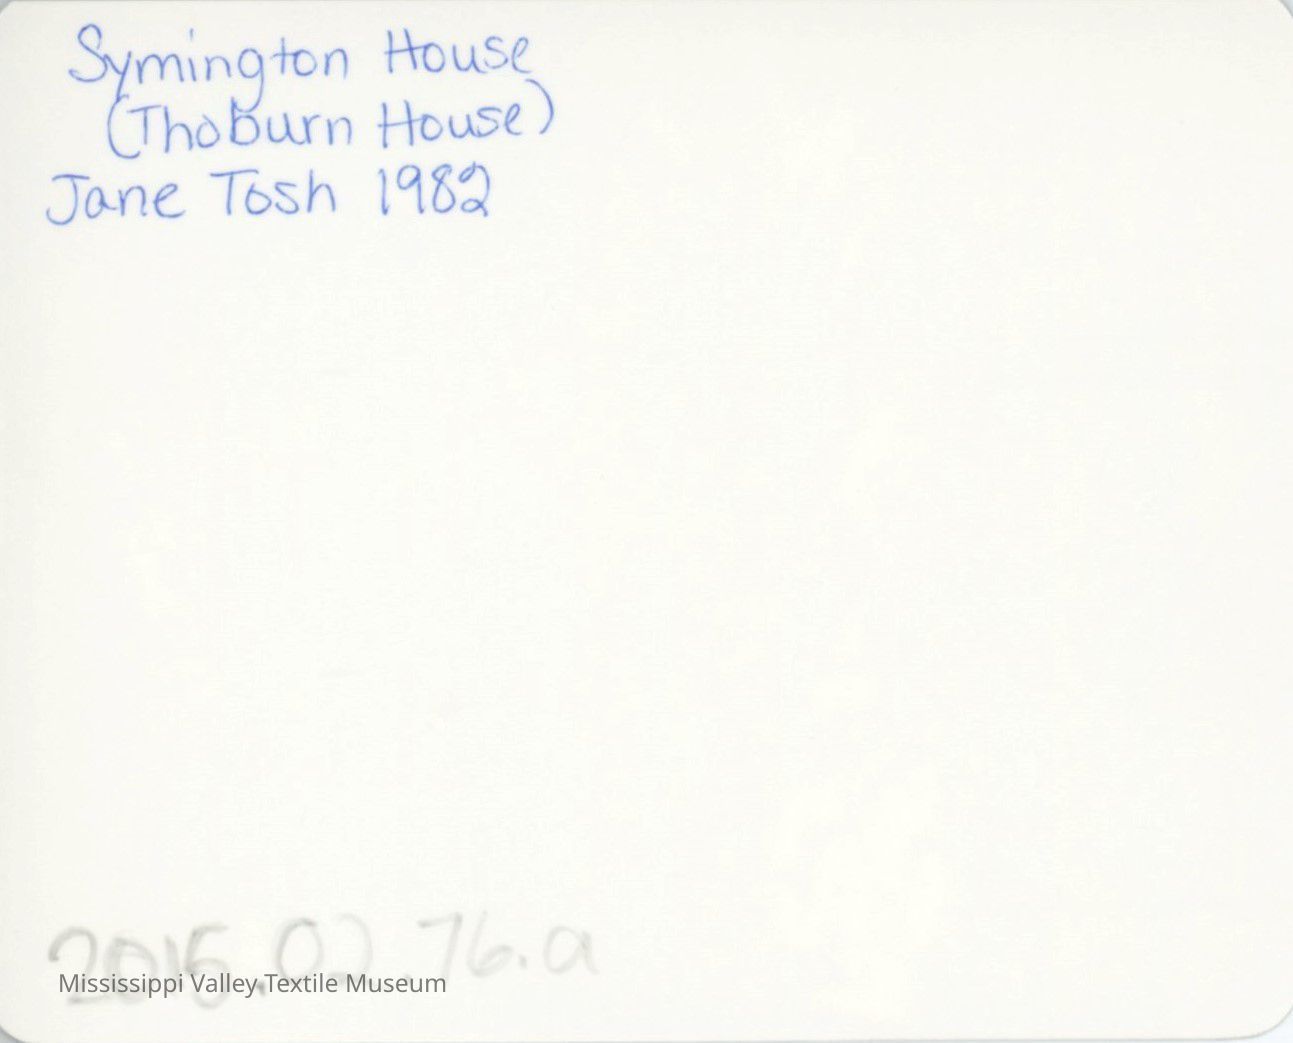 Symington House
(Thoburn House)
Jane Tosh 1982
2015.02.76.a
Mississippi Valley Textile Museum